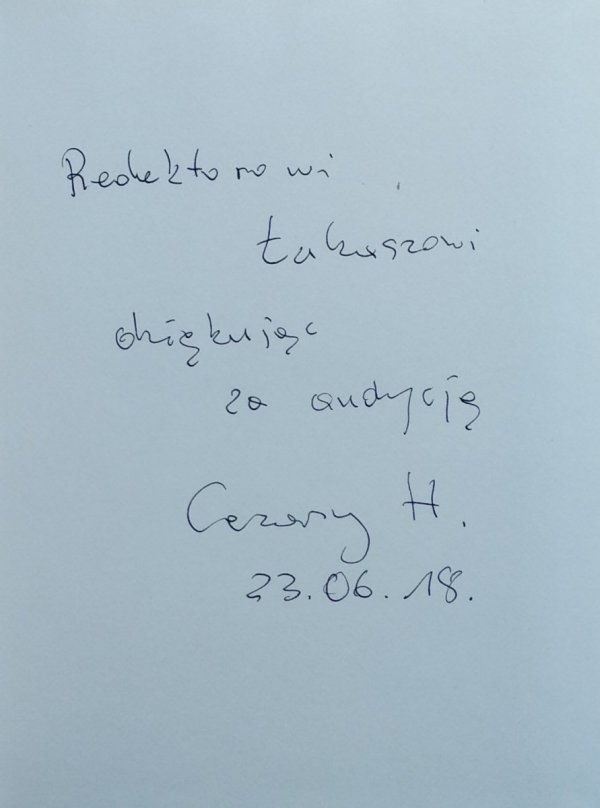 Redaktorowi
Łukaszowi
dziękując
za audycję
Cezary H.
23.06.18.